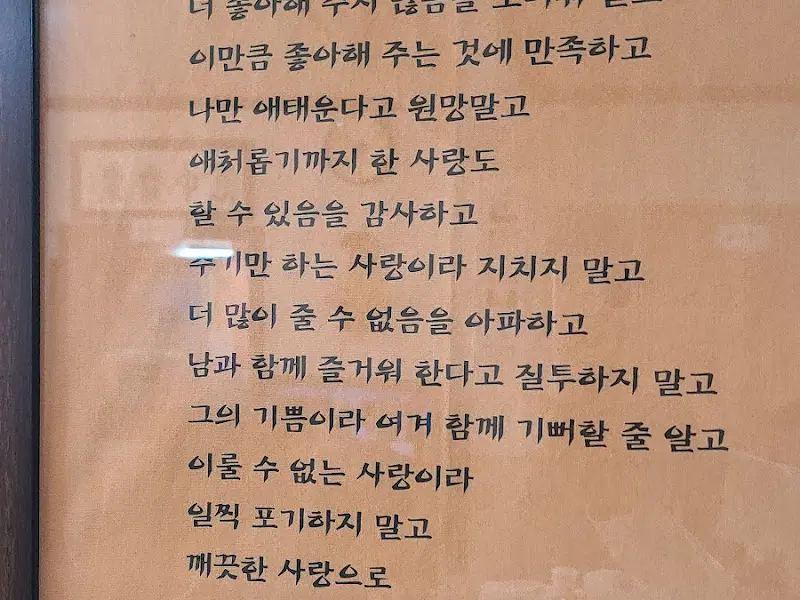 더 좋아해 주지 않음을 말고
이만큼 좋아해 주는 것에 만족하고
나만 애태운다고 원망말고
애처롭기까지 한 사랑도
할 수 있음을 감사하고
주기만 하는 사랑이라 지치지 말고
더 많이 줄 수 없음을 아파하고
남과 함께 즐거워 한다고 질투하지 말고
그의 기쁨이라 여겨 함께 기뻐할 줄 알고
이룰 수 없는 사랑이라
일찍 포기하지 말고
깨끗한 사랑으로